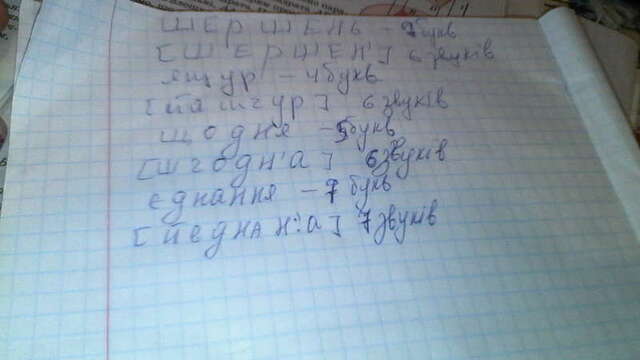 шершень - 7букв
[шершеин'] 6 звуків
ящур - 4букв
[йашчур] 6 звуків
щодня - 5букв
[шчодн'а] 6звуків
єднання - 7 букв
[йеднан':а] 7 звуків